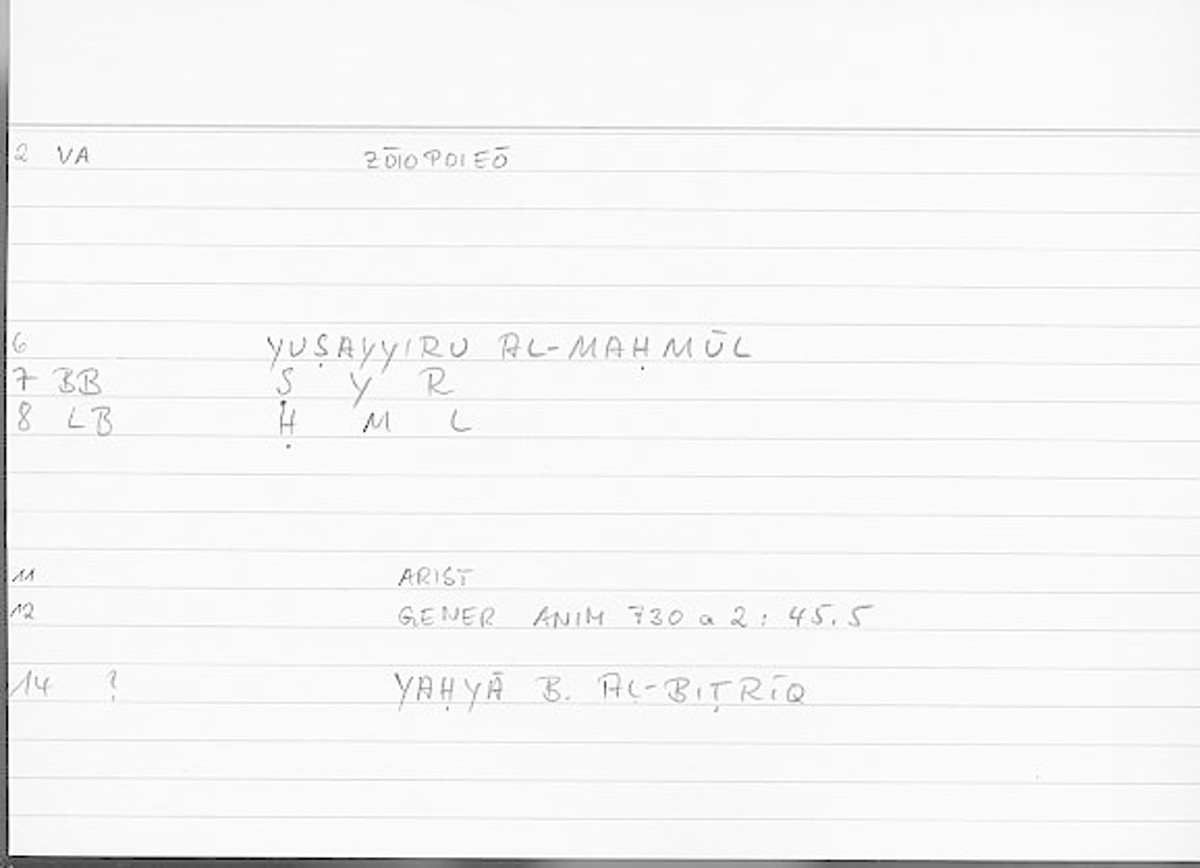 2 VA ZŌIOPOIEŌ
6 YUṢAYYIRU AL-MAḤMŪL
7 BB Ṣ Y R
8 LB Ḥ M L
11 ARIST
12 GENER ANIM 730 a 2 : 45.5
14 ? YAḤYĀ B. AL-BIṬRĪQ